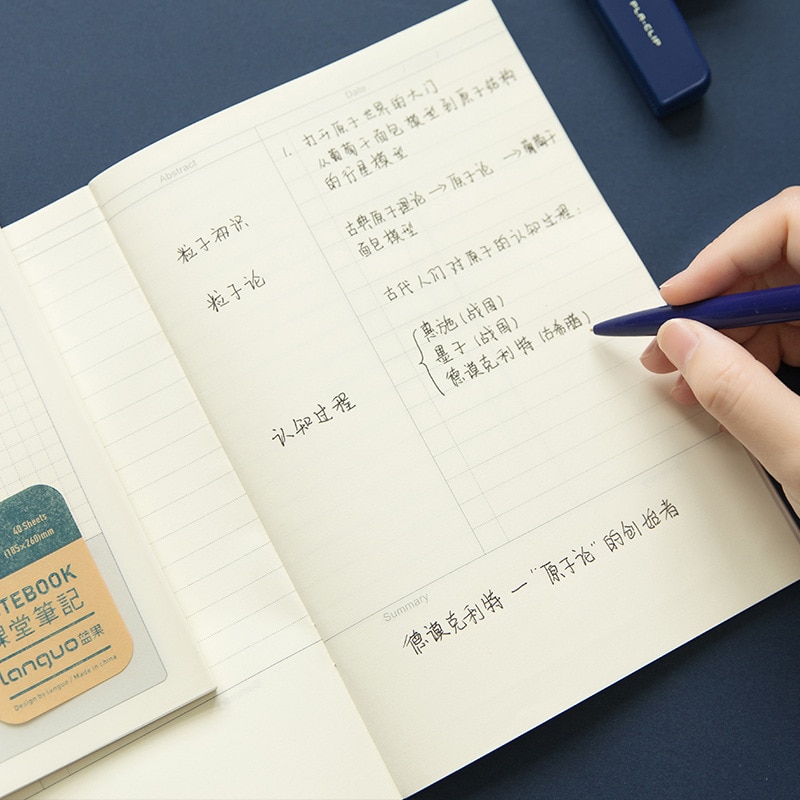 PLA-CLIP
Date
Abstract
1. 打开原子世界的大门
从葡萄干面包模型到原子结构
的行星模型
粒子初识
古典原子理论→原子论 →葡萄干
面包模型
粒子论
古代人们对原子的认知过程:
惠施(战国)
墨子(战国)
德谟克利特(古希腊)
认知过程
Summary
德谟克利特一"原子论"的创始者
40 Sheets
(185×260)mm
TEBOOK
課堂筆記
languo 蓝果
Design by languo / Made in china